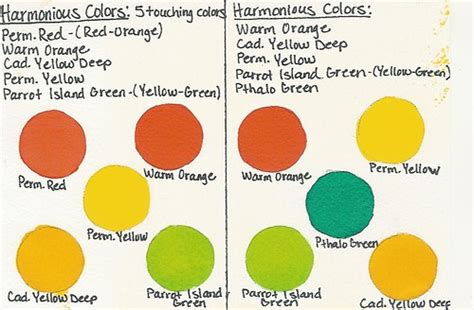 Harmonious Colors: 5 touching colors
Perm. Red - (Red-Orange)
Warm Orange
Cad. Yellow Deep
Perm. Yellow
Parrot Island Green - (Yellow-Green)
Perm. Red
Warm Orange
Perm. Yellow
Cad. Yellow Deep
Parrot Island
Green
Harmonious Colors:
Warm Orange
Cad. Yellow Deep
Perm. Yellow
Parrot Island Green - (Yellow-Green)
Pthalo Green
Warm Orange
Perm. Yellow
Pthalo Green
Parrot Island
Green
Cad. Yellow Deep